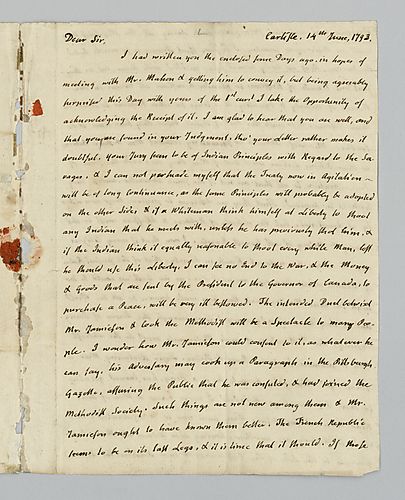 Dear Sir,
Carlisle. 14th June, 1793.
I had written you the enclosed some Days ago, in hopes of
meeting with Mr. Mahon & getting him to convey it, but being agreeably
surprised this Day with yours of the 1st curt I take the Opportunity of
acknowledging the Receipt of it. I am glad to hear that you are well, and
that you are found in your Judgment, tho' your Letter rather makes it
doubtful. Your Jury seem to be of Indian Principles with Regard to the Sa-
vages. & I can not persuade myself that the Treaty now in Agitation
will be of long continuance, as the same Principles will probably be adopted
on the other Side; & if a Whiteman think himself at Liberty to shoot
any Indian that he meets with, unless he has previously shot him, &
if the Indian think it equally reasonable to shoot every white Man, lest
he should use this Liberty, I can see no End to the War, & the Money
& Goods that are sent by the President to the Governor of Canada, to
purchase a Peace, will be very ill bestowed. The intended Duel betwixt
Mr. Jamieson & Cook the Methodist will be a Spectacle to many Peo-
ple. I wonder how Mr. Jamieson could consent to it, as whatever he
can say, his Adversary may cook up a Paragraph in the Pittsburgh
Gazette, assuring the Public that he was confuted, & had joined the
Methodist Society. Such things are not new among them & Mr.
Jamieson ought to have known them better. The French Republic
seems to be on its last Legs, & it is time that it should. If those